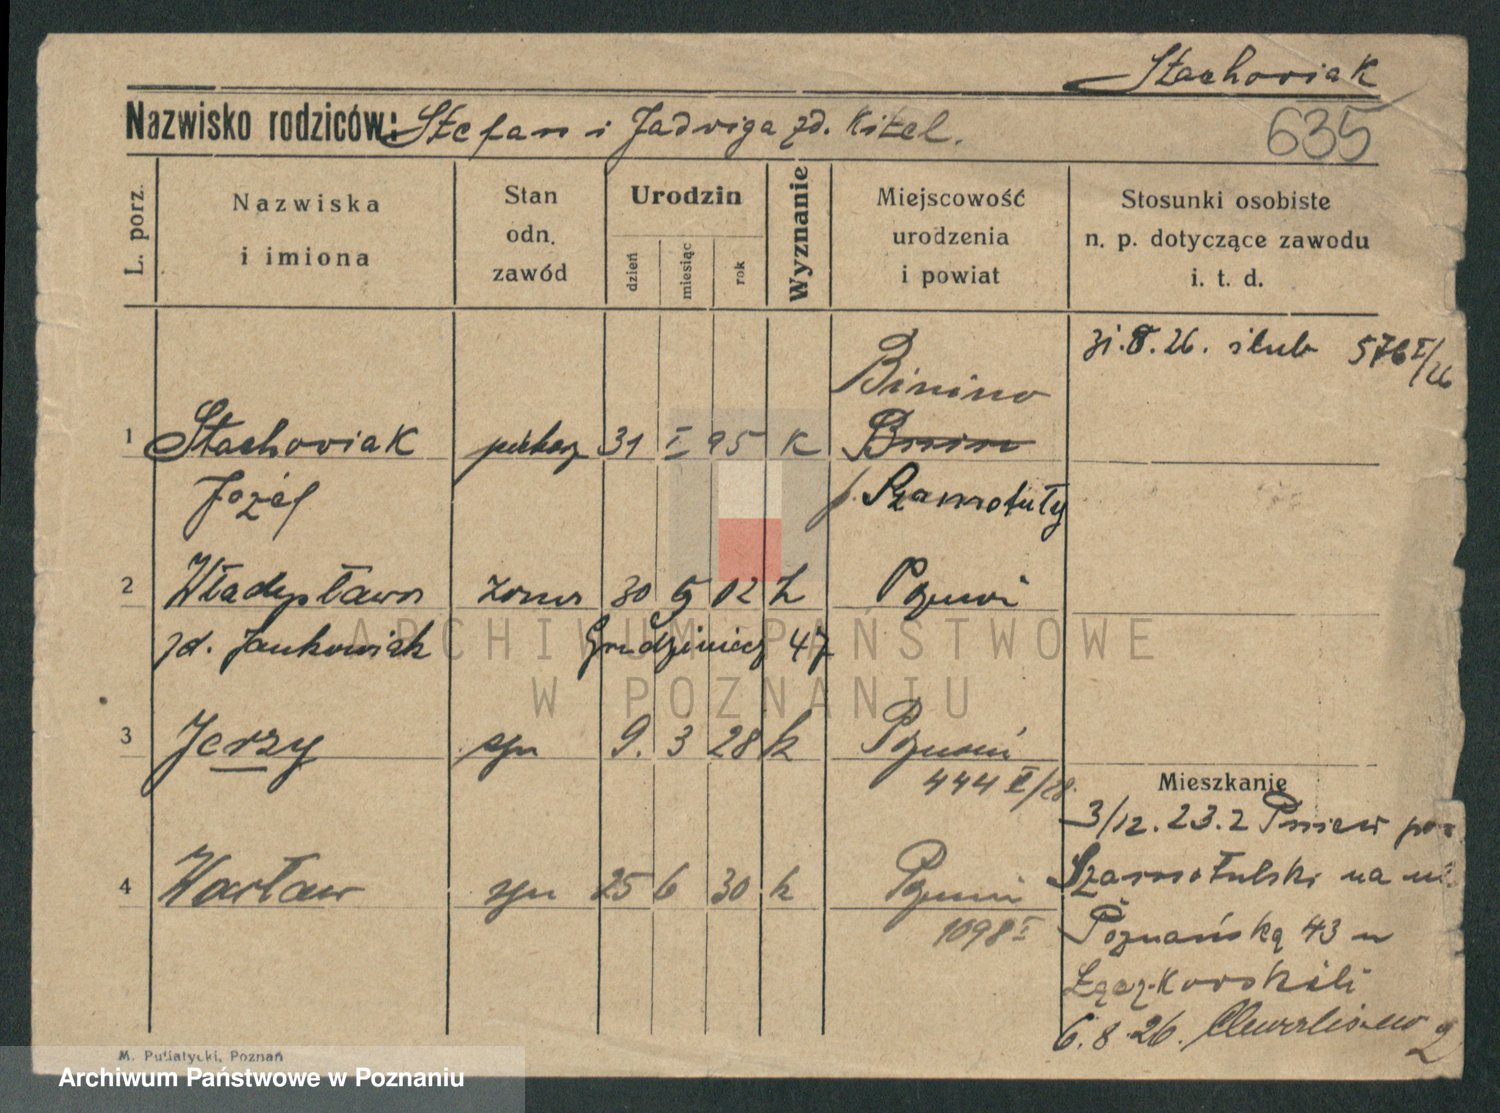 Stachoviak
Nazwisko rodziców: Stefan i Jadviga zd. Kitel.
635
L. porz.
Nazwiska
i imiona
Stan
odn.
zawód
Urodzin
dzień
miesiąc
rok
Wyznanie
Miejscowość
urodzenia
i powiat
Stosunki osobiste
n. p. dotyczące zawodu
i. t. d.
31.8.26. ślub 576 I/26
Binino
1 Stachoviak piekarz 31 I 95 K
Józef p. Szamotuły
2 Władysława żona 30 12 k Poznań
zd. Jankowiak 47
3 Jerzy syn 9. 3 28 k Poznań
444 II/28.
4 Wacław syn 25 6 30 k Poznań
1098 I
Mieszkanie
3/12.23.2 Pniew
Szamotulski na
Poznańską 43 u
6.8.26. Chwaliszewo 2
M. Putiatycki, Poznań
ARCHIWUM PAŃSTWOWE
W POZNANIU
Archiwum Państwowe w Poznaniu